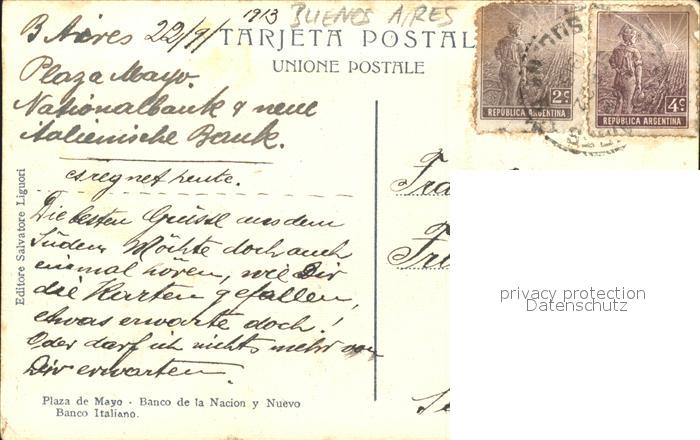 1913 BUENOS AIRES
B Aires 22/9/
TARJETA POSTAL
UNIONE POSTALE
2c
REPÚBLICA ARGENTINA
4c
REPÚBLICA ARGENTINA
Plaza Mayo.
Nationalbank & neue
italienische Bank.
es regnet heute.
Die besten Grüsse aus dem
Süden. Möchte doch auch
einmal hören, wie Dir
die Karten gefallen,
etwas erwarte doch!
Oder darf ich nichts mehr von
Dir erwarten.
Editore Salvatore Liguori
Plaza de Mayo - Banco de la Nacion y Nuevo
Banco Italiano.
privacy protection
Datenschutz